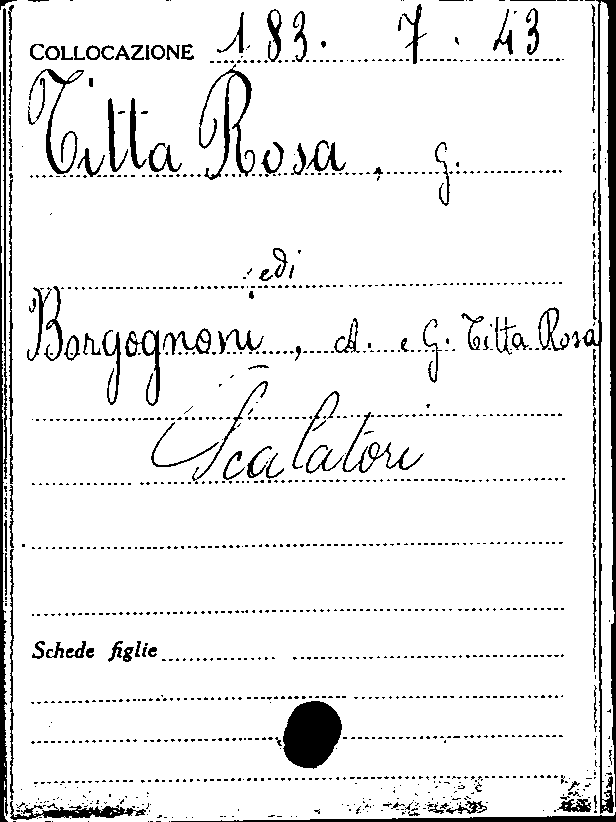 COLLOCAZIONE 183. 7. 43
Titta Rosa, G.
vedi
Borgognoni, A. e G. Titta Rosa
Scalatori
Schede figlie